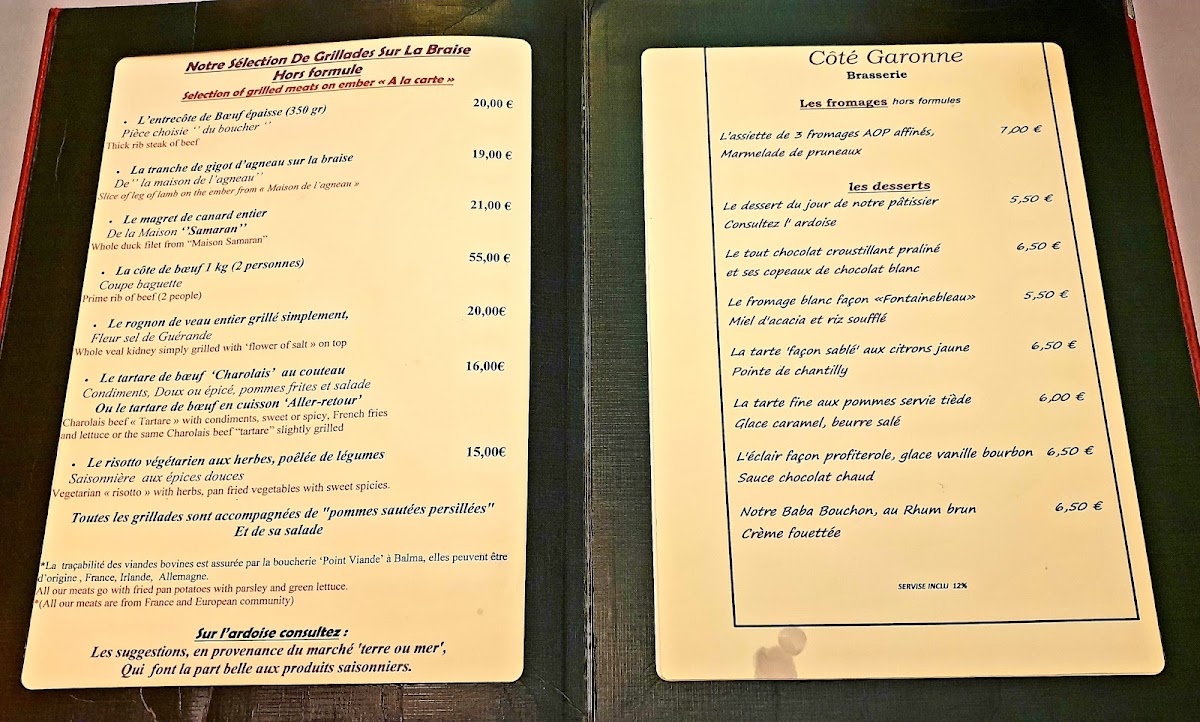 Notre Sélection De Grillades Sur La Braise
Hors formule
Selection of grilled meats on ember « A la carte »
• L'entrecôte de Bœuf épaisse (350 gr) 20,00 €
Pièce choisie '' du boucher ''
Thick rib steak of beef
• La tranche de gigot d'agneau sur la braise 19,00 €
De'' la maison de l'agneau''
Slice of leg of lamb on the ember from « Maison de l'agneau »
• Le magret de canard entier 21,00 €
De la Maison ''Samaran''
Whole duck filet from "Maison Samaran"
• La côte de bœuf 1 kg (2 personnes) 55,00 €
Coupe baguette
Prime rib of beef (2 people)
• Le rognon de veau entier grillé simplement, 20,00€
Fleur sel de Guérande
Whole veal kidney simply grilled with 'flower of salt » on top
• Le tartare de bœuf 'Charolais' au couteau 16,00€
Condiments, Doux ou épicé, pommes frites et salade
Ou le tartare de bœuf en cuisson 'Aller-retour'
Charolais beef « Tartare » with condiments, sweet or spicy, French fries
and lettuce or the same Charolais beef "tartare" slightly grilled
• Le risotto végétarien aux herbes, poêlée de légumes 15,00€
Saisonnière aux épices douces
Vegetarian « risotto » with herbs, pan fried vegetables with sweet spicies.
Toutes les grillades sont accompagnées de "pommes sautées persillées"
Et de sa salade
*La traçabilité des viandes bovines est assurée par la boucherie 'Point Viande' à Balma, elles peuvent être
d'origine , France, Irlande, Allemagne.
All our meats go with fried pan potatoes with parsley and green lettuce.
*(All our meats are from France and European community)
Sur l'ardoise consultez :
Les suggestions, en provenance du marché 'terre ou mer',
Qui font la part belle aux produits saisonniers.
Côté Garonne
Brasserie
Les fromages hors formules
L'assiette de 3 fromages AOP affinés, 7,00 €
Marmelade de pruneaux
les desserts
Le dessert du jour de notre pâtissier 5,50 €
Consultez l' ardoise
Le tout chocolat croustillant praliné 6,50 €
et ses copeaux de chocolat blanc
Le fromage blanc façon «Fontainebleau» 5,50 €
Miel d'acacia et riz soufflé
La tarte 'façon sablé' aux citrons jaune 6,50 €
Pointe de chantilly
La tarte fine aux pommes servie tiède 6,00 €
Glace caramel, beurre salé
L'éclair façon profiterole, glace vanille bourbon 6,50 €
Sauce chocolat chaud
Notre Baba Bouchon, au Rhum brun 6,50 €
Crème fouettée
SERVISE INCLU 12%